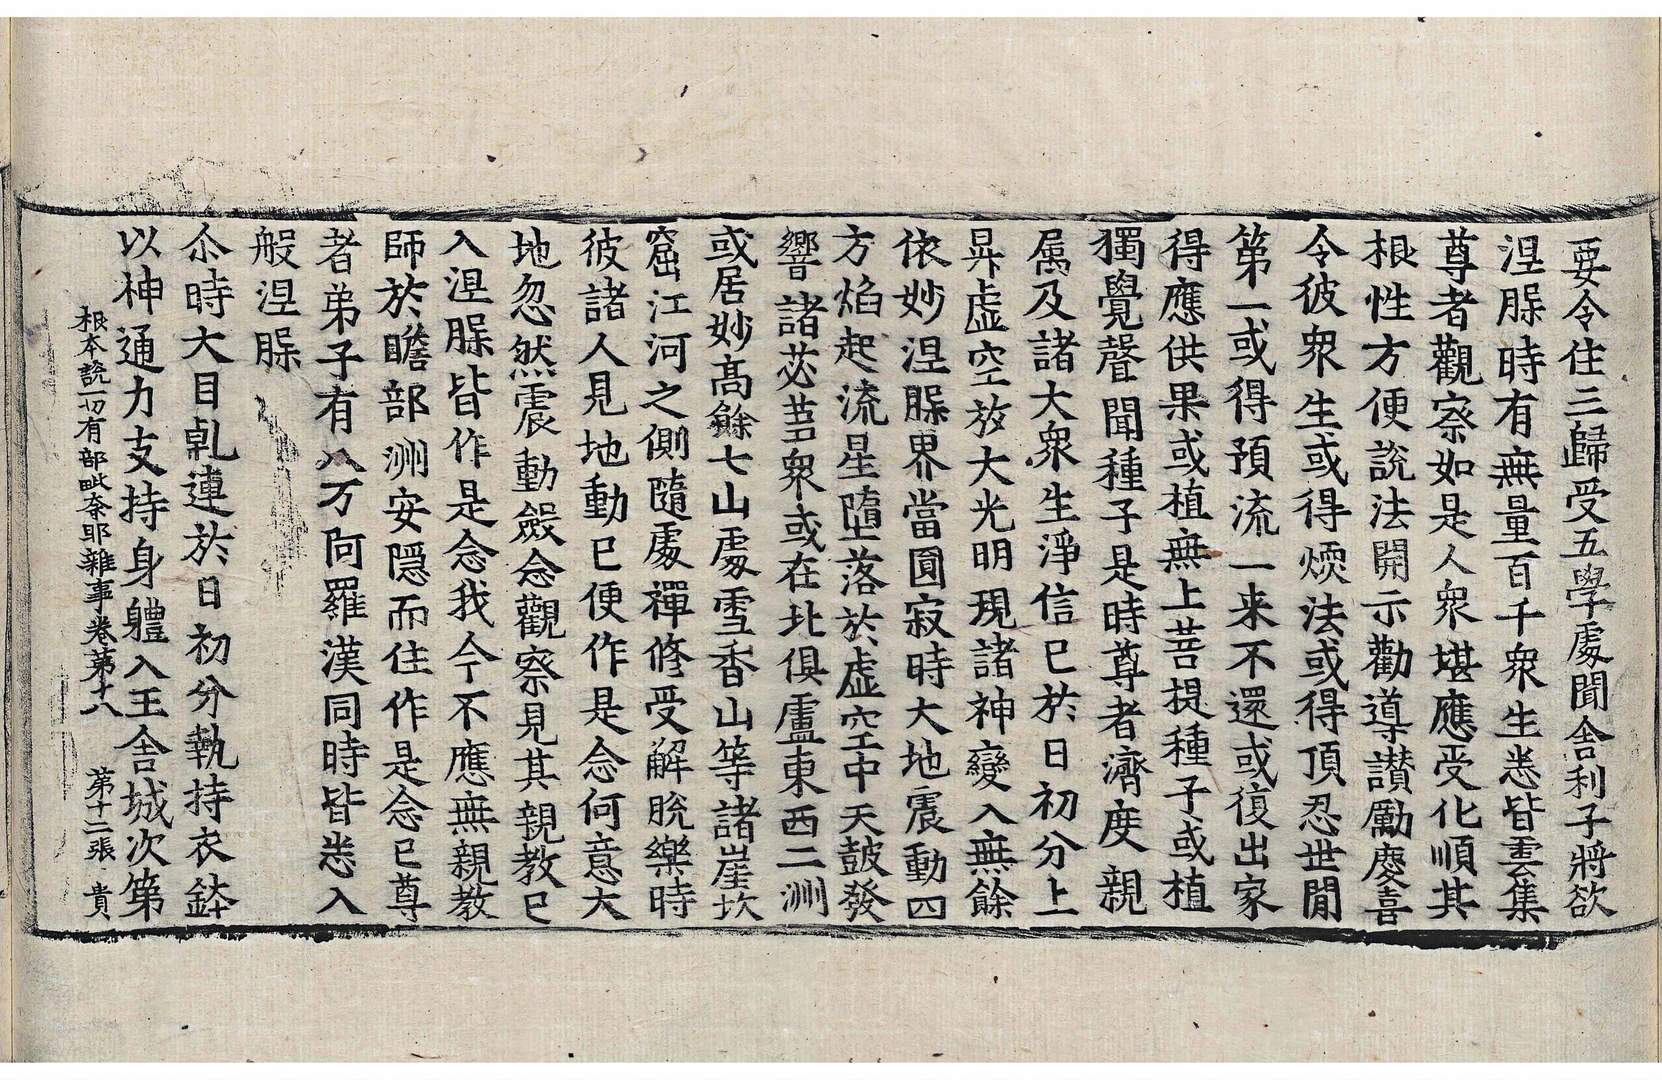 要令住三歸受五學處聞舍利子將欲
涅脲時有無量百千衆生悉皆雲集
尊者觀察如是人衆堪應受化順其
根性方便說法開示勸導讃勵慶喜
令彼衆生或得煗法或得頂忍世間
第一或得預流一来不還或復出家
得應供果或植無上菩提種子或植
獨覺聲聞種子是時尊者濟度親
属及諸大衆生淨信已於日初分上
昇虛空放大光明現諸神變入無餘
依妙涅脲界當圓寂時大地震動四
方焰起流星墮落於虛空中天鼓發
響諸苾芻衆或在北俱盧東西二洲
或居妙高餘七山處雪香山等諸崖坎
窟江河之側隨處禪修受解脫樂時
彼諸人見地動已便作是念何意大
地忽然震動斂念觀察見其親教已
入涅脲皆作是念我今不應無親教
師於瞻部洲安隱而住作是念已尊
者弟子有八万阿羅漢同時皆悉入
般涅脲
尒時大目乹連於日初分執持衣鉢
以神通力支持身體入王舍城次第
根本說一切有部毗奈耶雜事卷第十八 第十二張 貴